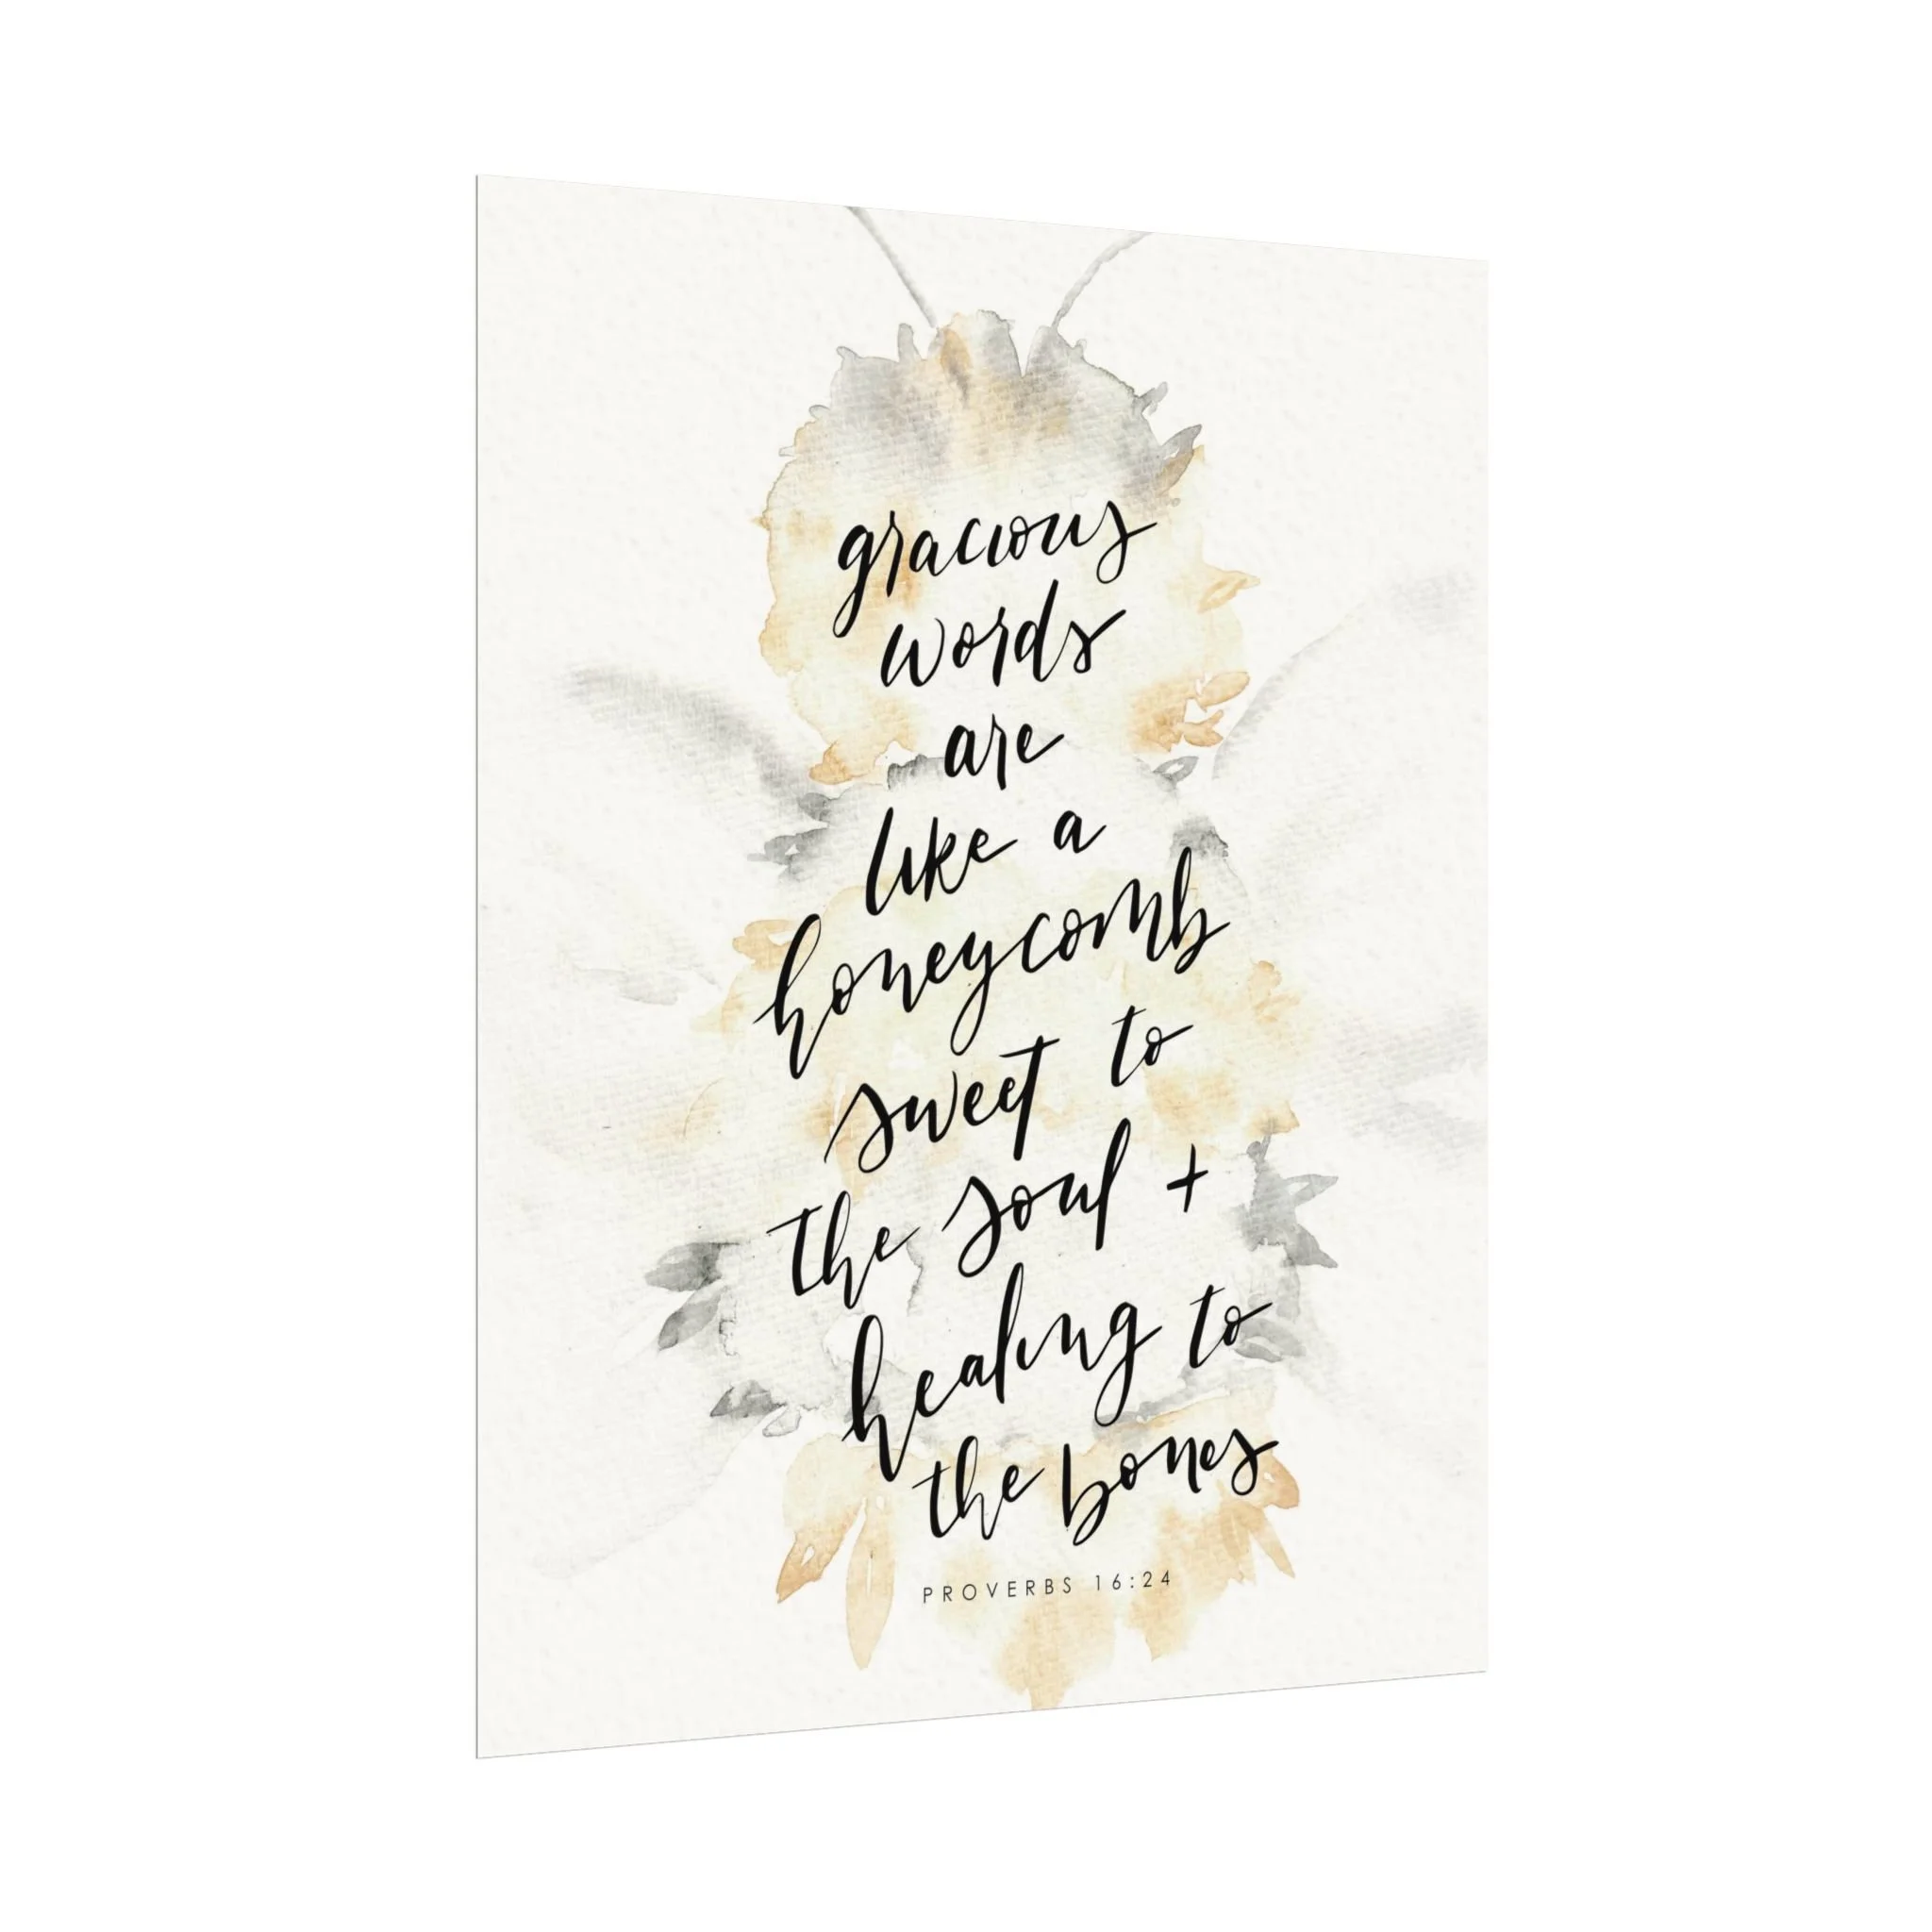 gracious
words
are
like a
honeycomb
sweet to
the soul +
healing to
the bones
PROVERBS 16:24